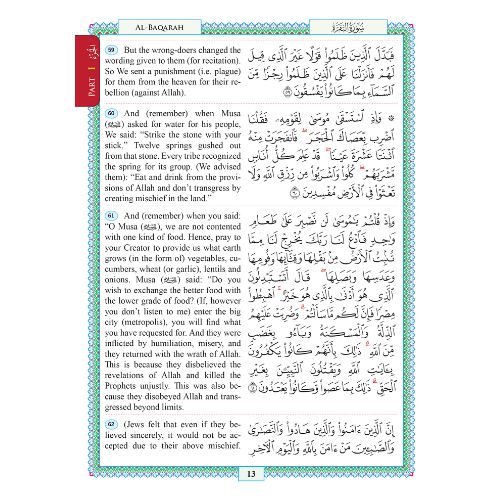 AL-BAQARAH
سُورَةُ الْبَقَرَة
PART 1 الجزء
59 But the wrong-doers changed the
wording given to them (for recitation).
So We sent a punishment (i.e. plague)
for them from the heaven for their re-
bellion (against Allah).
60 And (remember) when Musa
(ﷺ) asked for water for his people,
We said: “Strike the stone with your
stick.” Twelve springs gushed out
from that stone. Every tribe recognized
the spring for its group. (We advised
them): “Eat and drink from the provi-
sions of Allah and don’t transgress by
creating mischief in the land.”
61 And (remember) when you said:
“O Musa (ﷺ), we are not contented
with one kind of food. Hence, pray to
your Creator to provide us what earth
grows (in the form of) vegetables, cu-
cumbers, wheat (or garlic), lentils and
onions. Musa (ﷺ) said: “Do you
wish to exchange the better food with
the lower grade of food? (If, however
you don’t listen to me) enter the big
city (metropolis), you will find what
you have requested for. And they were
inflicted by humiliation, misery, and
they returned with the wrath of Allah.
This is because they disbelieved the
revelations of Allah and killed the
Prophets unjustly. This was also be-
cause they disobeyed Allah and trans-
gressed beyond limits.
62 (Jews felt that even if they be-
lieved sincerely, it would not be ac-
cepted due to their above mischief.
فَبَدَّلَ ٱلَّذِينَ ظَلَمُوا۟ قَوْلًا غَيْرَ ٱلَّذِى قِيلَ
لَهُمْ فَأَنزَلْنَا عَلَى ٱلَّذِينَ ظَلَمُوا۟ رِجْزًا مِّنَ
ٱلسَّمَآءِ بِمَا كَانُوا۟ يَفْسُقُونَ ٥٩
۞ وَإِذِ ٱسْتَسْقَىٰ مُوسَىٰ لِقَوْمِهِۦ فَقُلْنَا
ٱضْرِب بِّعَصَاكَ ٱلْحَجَرَ ۖ فَٱنفَجَرَتْ مِنْهُ
ٱثْنَتَا عَشْرَةَ عَيْنًا ۖ قَدْ عَلِمَ كُلُّ أُنَاسٍ
مَّشْرَبَهُمْ ۖ كُلُوا۟ وَٱشْرَبُوا۟ مِن رِّزْقِ ٱللَّهِ وَلَا
تَعْثَوْا۟ فِى ٱلْأَرْضِ مُفْسِدِينَ ٦٠
وَإِذْ قُلْتُمْ يَٰمُوسَىٰ لَن نَّصْبِرَ عَلَىٰ طَعَامٍ
وَٰحِدٍ فَٱدْعُ لَنَا رَبَّكَ يُخْرِجْ لَنَا مِمَّا
تُنۢبِتُ ٱلْأَرْضُ مِنۢ بَقْلِهَا وَقِثَّآئِهَا وَفُومِهَا
وَعَدَسِهَا وَبَصَلِهَا ۖ قَالَ أَتَسْتَبْدِلُونَ
ٱلَّذِى هُوَ أَدْنَىٰ بِٱلَّذِى هُوَ خَيْرٌ ۚ ٱهْبِطُوا۟
مِصْرًا فَإِنَّ لَكُم مَّا سَأَلْتُمْ ۗ وَضُرِبَتْ عَلَيْهِمُ
ٱلذِّلَّةُ وَٱلْمَسْكَنَةُ وَبَآءُو بِغَضَبٍ
مِّنَ ٱللَّهِ ۗ ذَٰلِكَ بِأَنَّهُمْ كَانُوا۟ يَكْفُرُونَ
بِـَٔايَٰتِ ٱللَّهِ وَيَقْتُلُونَ ٱلنَّبِيِّۦنَ بِغَيْرِ
ٱلْحَقِّ ۗ ذَٰلِكَ بِمَا عَصَوا۟ وَّكَانُوا۟ يَعْتَدُونَ ٦١
إِنَّ ٱلَّذِينَ ءَامَنُوا۟ وَٱلَّذِينَ هَادُوا۟ وَٱلنَّصَٰرَىٰ
وَٱلصَّٰبِـِٔينَ مَنْ ءَامَنَ بِٱللَّهِ وَٱلْيَوْمِ ٱلْـَٔاخِرِ
13